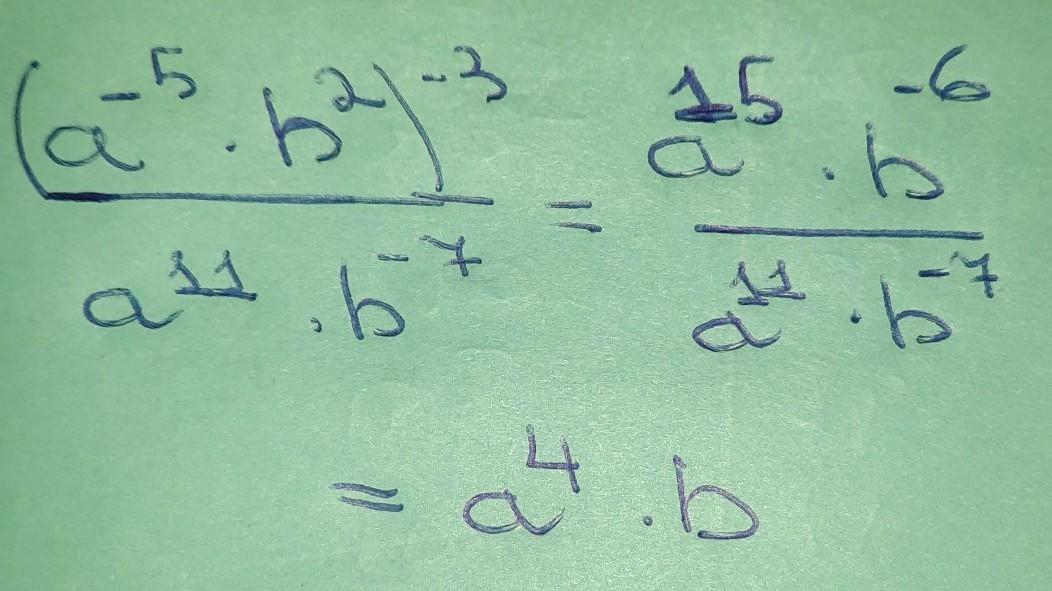 (a⁻⁵ · b²)⁻³ / (a¹¹ · b⁻⁷) = (a¹⁵ · b⁻⁶) / (a¹¹ · b⁻⁷)
= a⁴ · b